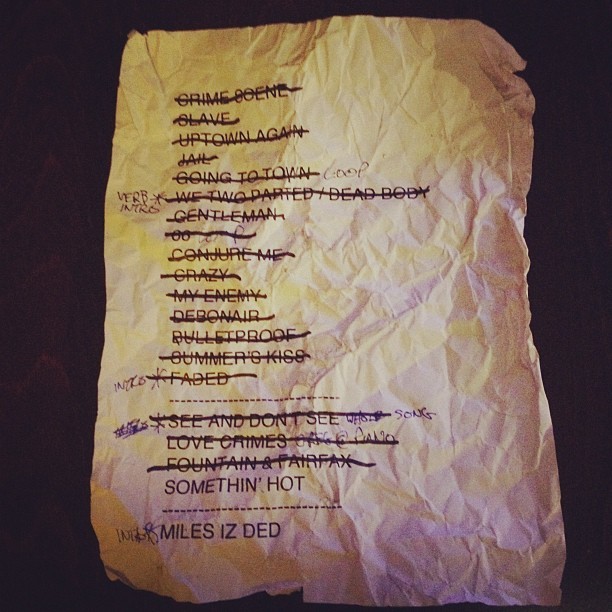 CRIME SCENE
SLAVE
UPTOWN AGAIN
JAIL
GOING TO TOWN LOOP
VERB * WE TWO PARTED / DEAD BODY
INTRO
GENTLEMAN
66 LOOP
CONJURE ME
CRAZY
MY ENEMY
DEBONAIR
BULLETPROOF
SUMMER'S KISS
INTRO * FADED
------------------------------
* SEE AND DON'T SEE WHOLE SONG
LOVE CRIMES @ PIANO
FOUNTAIN & FAIRFAX
SOMETHIN' HOT
------------------------------
INTRO * MILES IZ DED